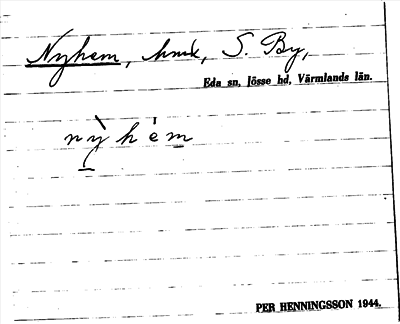 Nyhem, hmk, S. By,
Eda sn, Jösse hd, Värmlands län.
nỳhém
PER HENNINGSSON 1944.